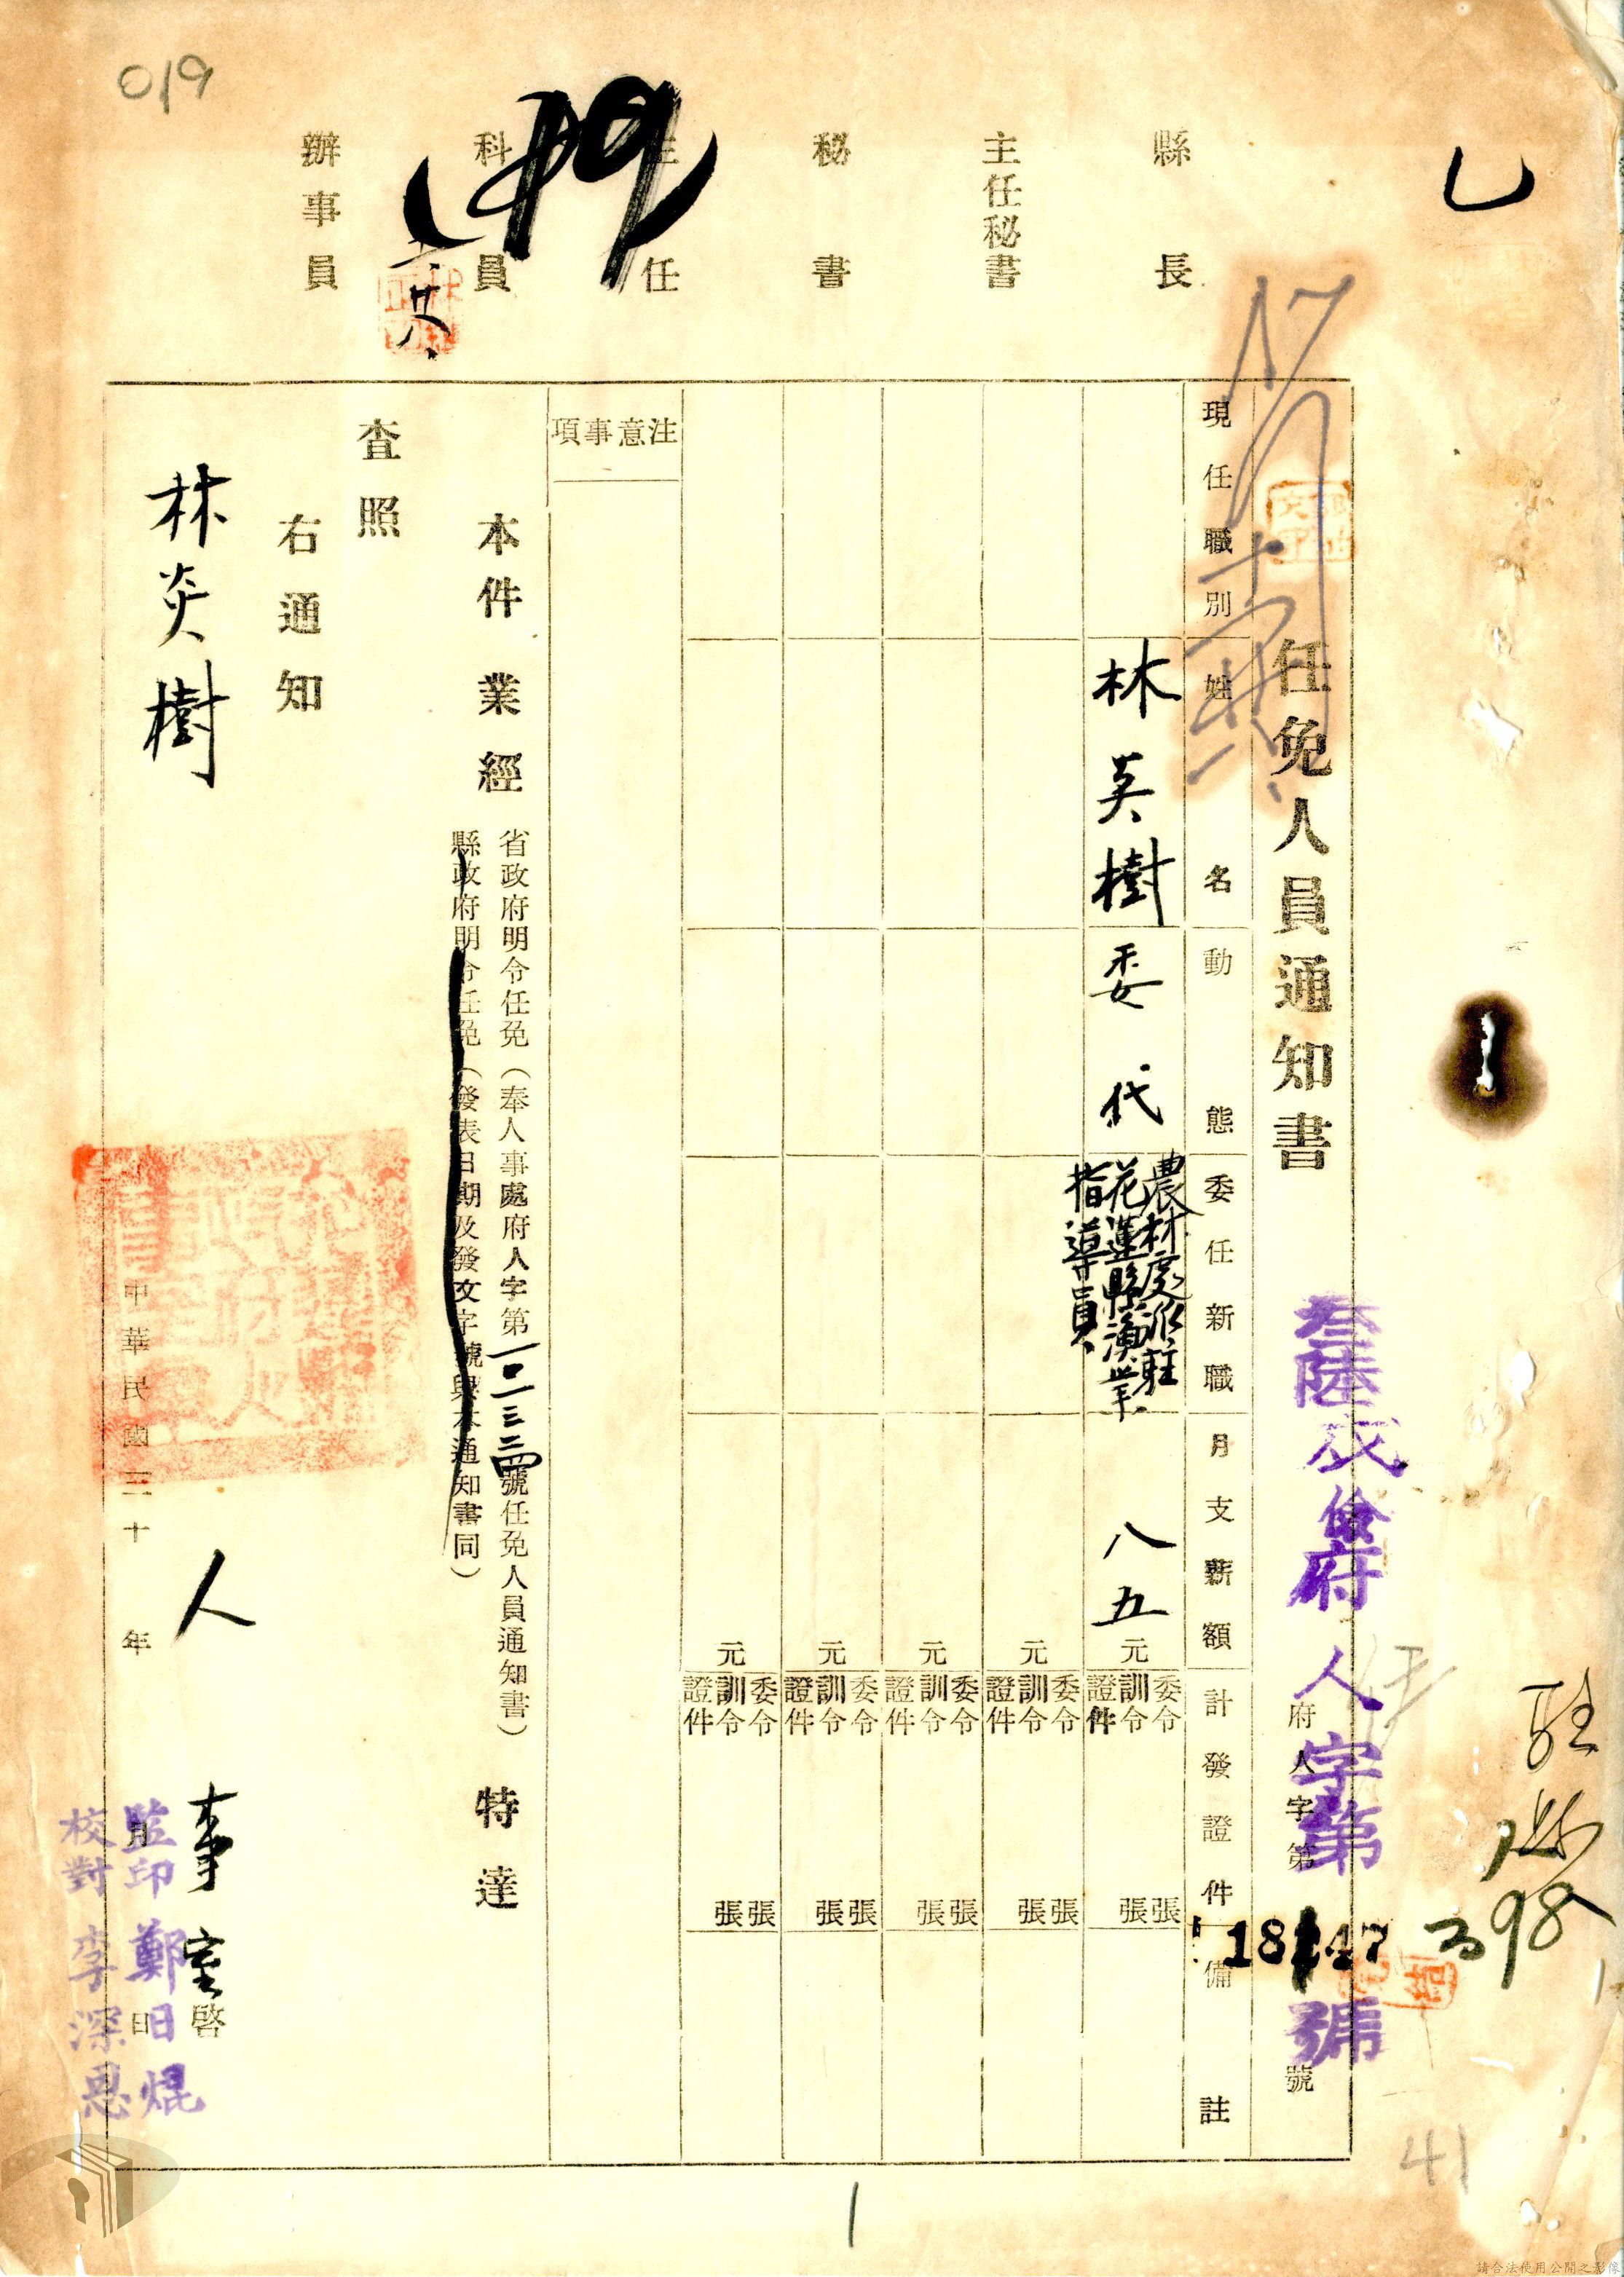 019
乙
縣長
主任秘書
秘書
主任
科員
辦事員
任免人員通知書
府人字第 號
叁陸戌儉府人字第 號
18147
現任職別
姓名
動態
委任新職
月支薪額
計發證件
備註
林英樹
委代
農林處派駐
花蓮縣漁業
指導員
八五元
委令 張
訓令 張
證件
元
委令 張
訓令 張
證件
元
委令 張
訓令 張
證件
元
委令 張
訓令 張
證件
元
委令 張
訓令 張
證件
注意事項
本件業經
省政府明令任免（奉人事處府人字第一〇一三二四號任免人員通知書）
縣政府明令任免（發表日期及發文字號與本通知書同）
特達
查照
右通知
林炎樹
人事室啓
中華民國三十 年 月 日
監印 鄭日焜
校對 李深恩
398
41
1
請合法使用公開之影像